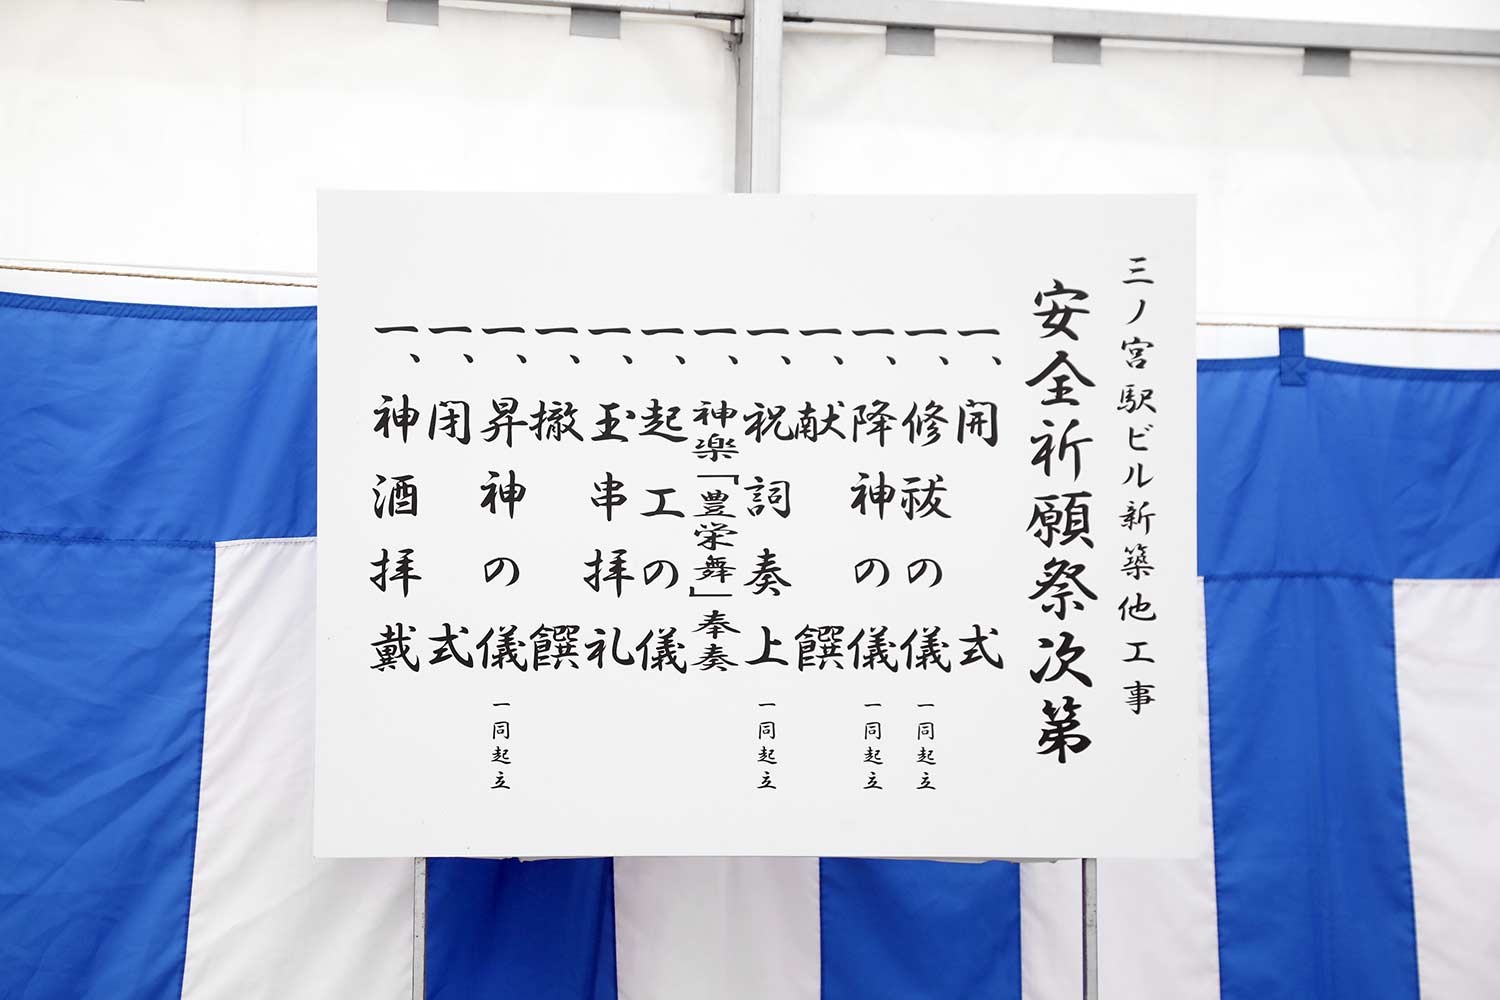 三ノ宮駅ビル新築他工事
安全祈願祭次第
一、開式
一、修祓の儀 一同起立
一、降神の儀 一同起立
一、献饌
一、祝詞奏上 一同起立
一、神楽「豊栄舞」奉奏
一、起工の儀
一、玉串拝礼
一、撤饌
一、昇神の儀 一同起立
一、閉式
一、神酒拝戴